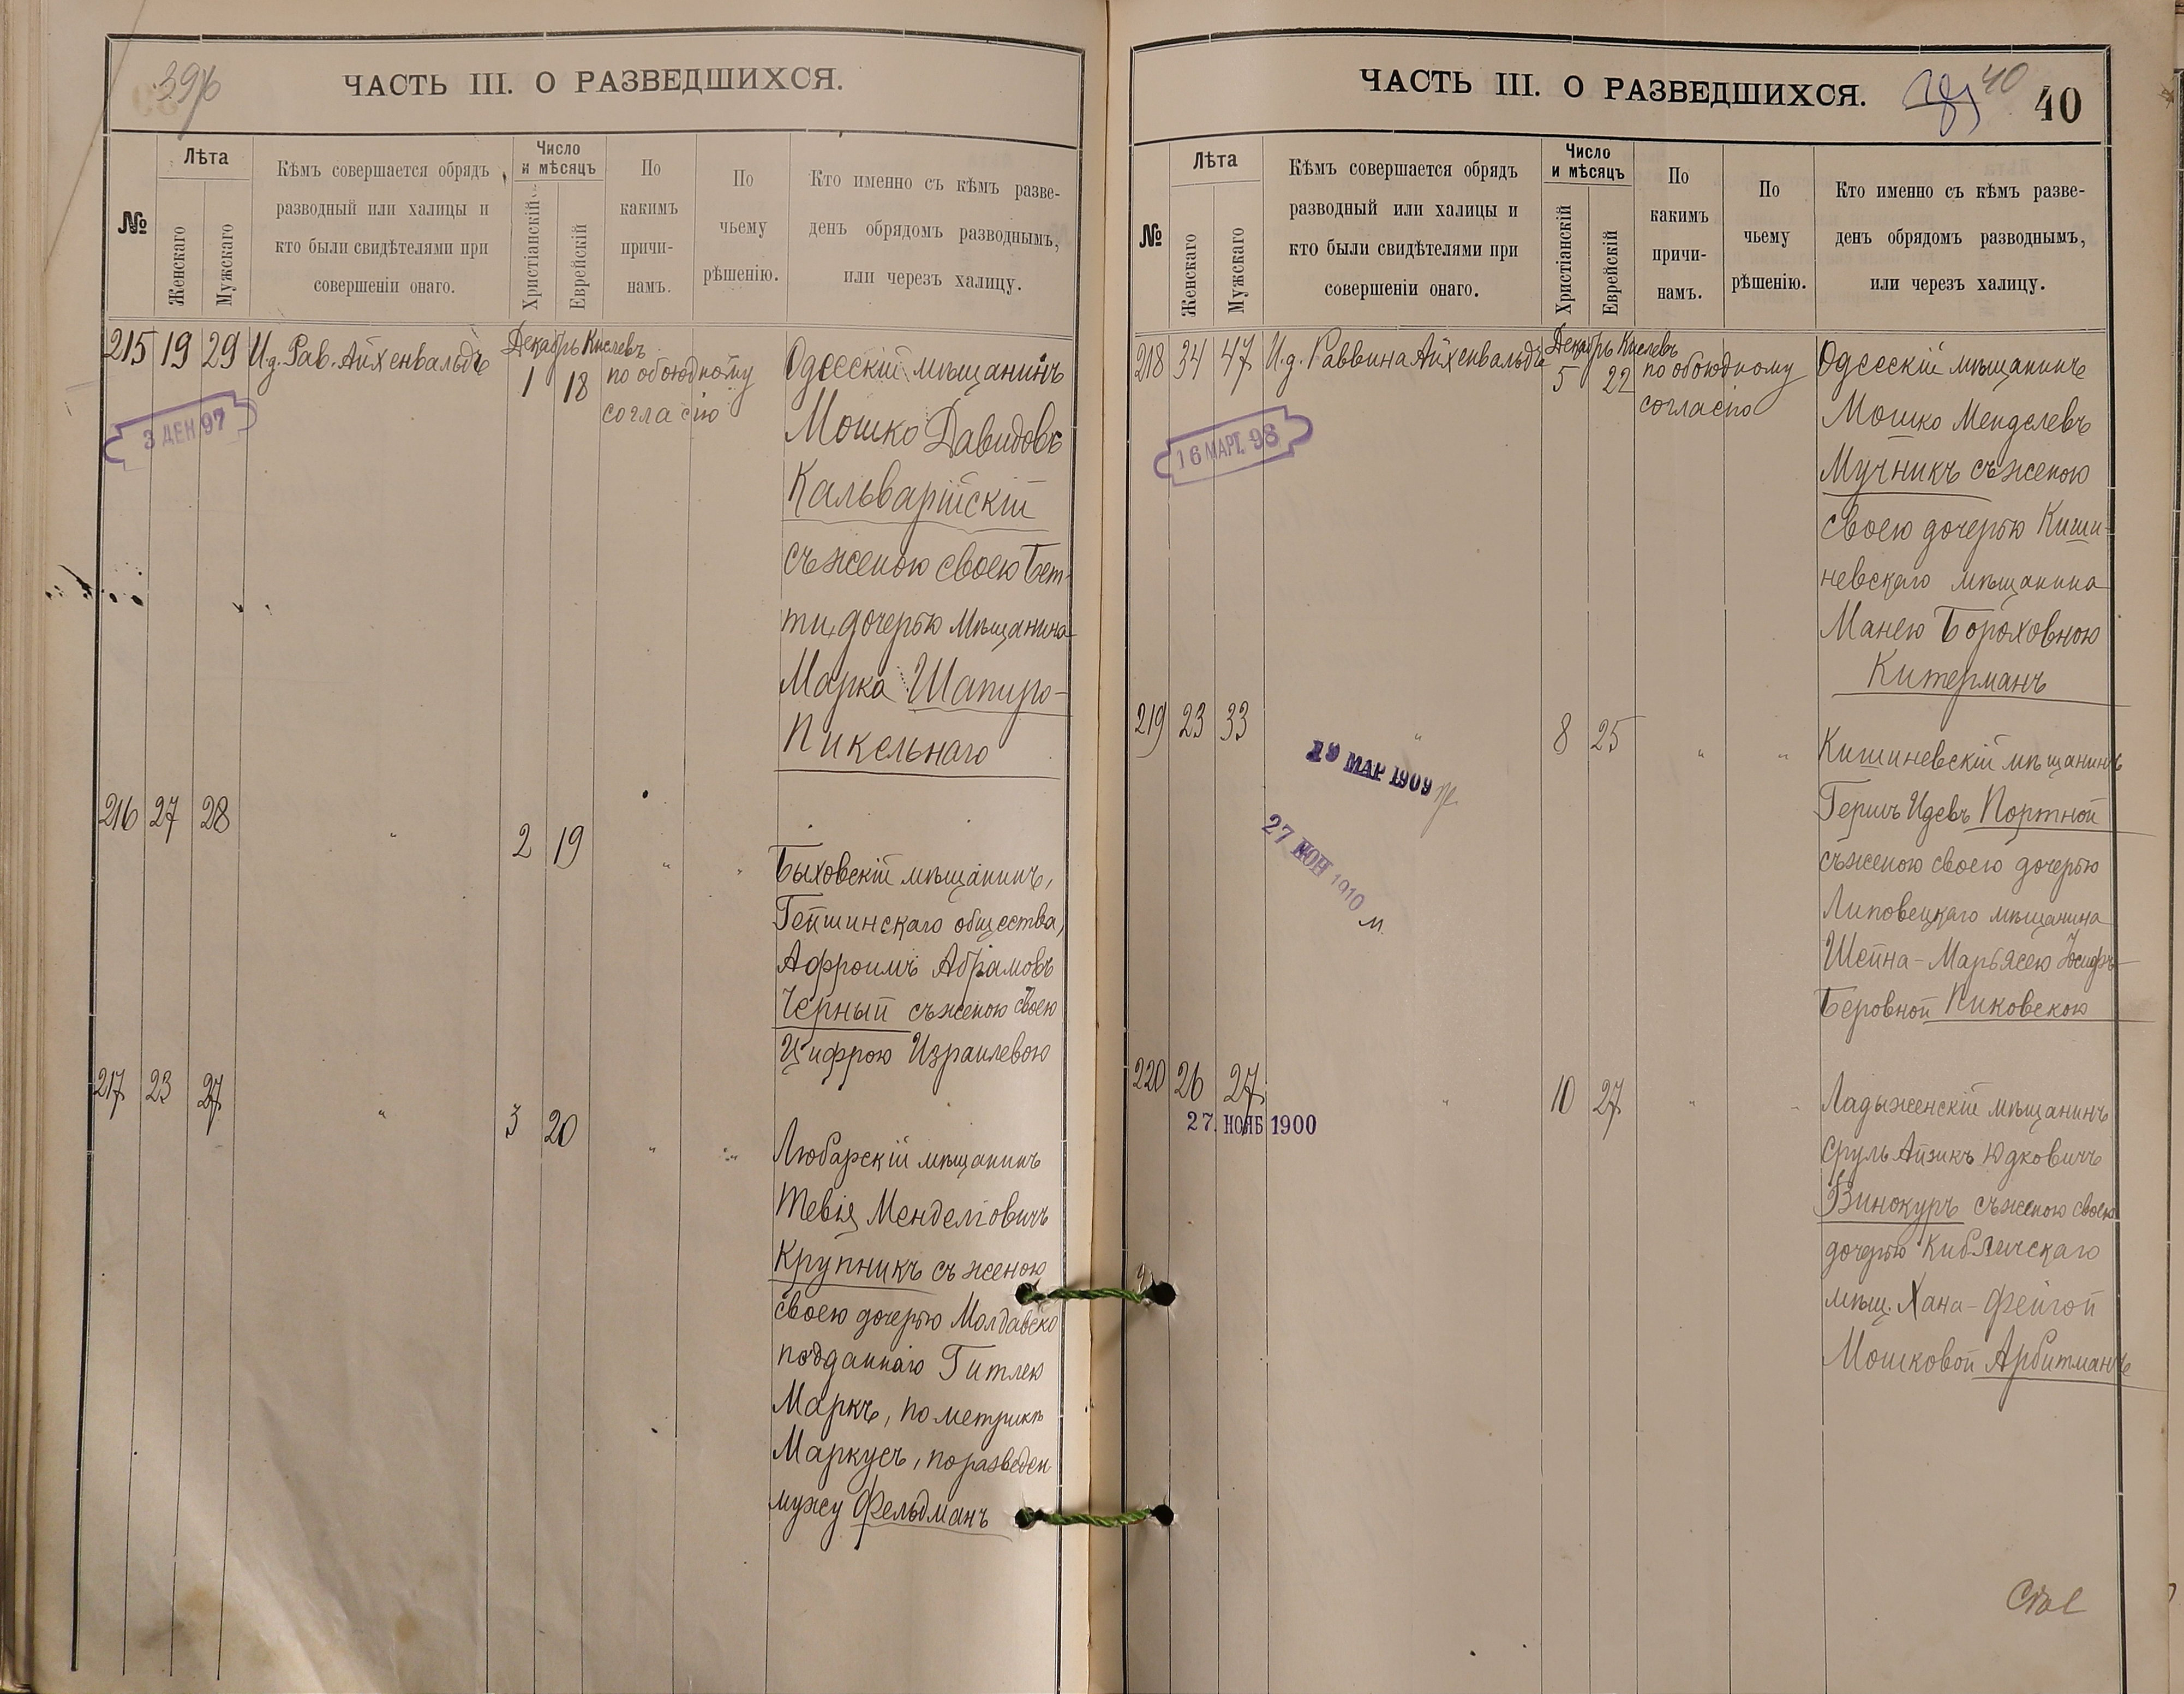 39 об
ЧАСТЬ III. О РАЗВЕДШИХСЯ.
№
Лѣта
Женскаго
Мужскаго
Кѣмъ совершается обрядъ
разводный или халицы и
кто были свидѣтелями при
совершеніи онаго.
Число
и мѣсяцъ
Христіанскій
Еврейскій
По
какимъ
причи-
намъ.
По
чьему
рѣшенію.
Кто именно съ кѣмъ разве-
денъ обрядомъ разводнымъ,
или черезъ халицу.
215 19 29 И.д. Рав. Айхенвальдъ
Декабрь Кислевъ
1 18
по обоюдному
согласію
3 ДЕК 97
Одесскій мѣщанинъ
Мошко Давидовъ
Кальварійскій
съ женою своею Бет-
ти, дочерью мѣщанина
Марка Шапиро-
Пикельнаго
216 27 28 " 2 19 " "
Быховскій мѣщанинъ,
Гейшинскаго общества,
Афроимъ Абрамовъ
Черный съ женою своею
Цифрою Израилевою
217 23 27 " 3 20 " "
Любарскій мѣщанинъ
Тевія Менделіовичъ
Крупникъ съ женою
своею дочерью Молдавско
подданнаго Гитлею
Маркъ, по метрикѣ
Маркусъ, по разведен.
мужу Фельдманъ
ЧАСТЬ III. О РАЗВЕДШИХСЯ.
40
40
№
Лѣта
Женскаго
Мужскаго
Кѣмъ совершается обрядъ
разводный или халицы и
кто были свидѣтелями при
совершеніи онаго.
Число
и мѣсяцъ
Христіанскій
Еврейскій
По
какимъ
причи-
намъ.
По
чьему
рѣшенію.
Кто именно съ кѣмъ разве-
денъ обрядомъ разводнымъ,
или черезъ халицу.
218 34 47 И.д. Раввина Айхенвальдъ
Декабрь Кислевъ
5 22
по обоюдному
согласію
16 МАРТ. 98
Одесскій мѣщанинъ
Мошко Менделевъ
Мучникъ съ женою
своею дочерью Киши-
невскаго мѣщанина
Манею Бороховною
Китерманъ
219 23 33 " 8 25 " "
19 МАР 1909
27 ИЮН 1910
м.
Кишиневскій мѣщанинъ
Гершъ Идевъ Портной
съ женою своею дочерью
Липовецкаго мѣщанина
Шейна-Марьясею Іосифъ-
Беровной Пиковскою
220 26 27 " 10 27 " "
27. НОЯБ 1900
Ладыженскій мѣщанинъ
Сруль Айзикъ Юдковичъ
Винокуръ съ женою своею
дочерью Кибличскаго
мѣщ. Хана-Фейгой
Мошковой Арбитманъ